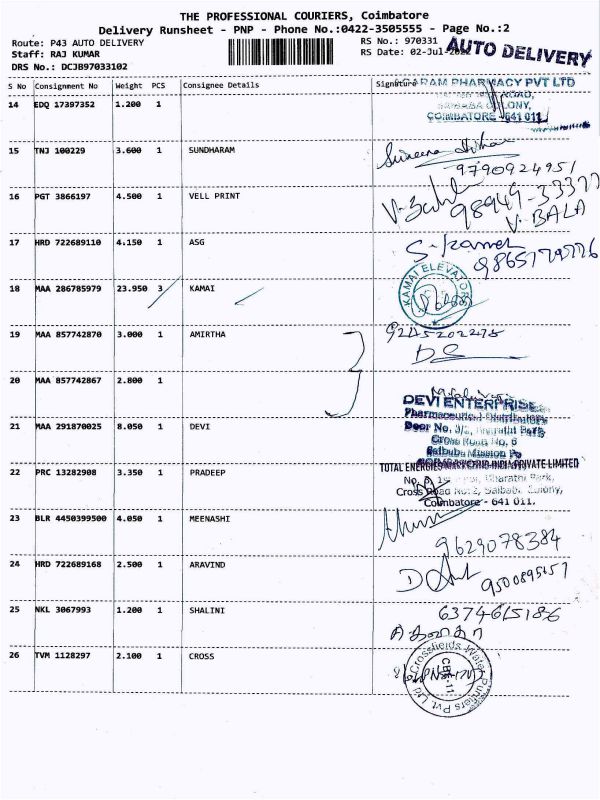 THE PROFESSIONAL COURIERS, Coimbatore
Delivery Runsheet - PNP - Phone No.:0422-3505555 - Page No.:2
Route: P43 AUTO DELIVERY RS No.: 970331
Staff: RAJ KUMAR RS Date: 02-Jul-2022 AUTO DELIVERY
DRS No.: DCJB97033102
S No Consignment No Weight PCS Consignee Details Signature
PHARMACY PVT LTD
14 EDQ 17397352 1.200 1
ROAD,
COLONY,
COIMBATORE - 641 011
15 TNJ 100229 3.600 1 SUNDHARAM
9790924951
16 PGT 3866197 4.500 1 VELL PRINT
V. BALA
17 HRD 722689110 4.150 1 ASG
18 MAA 286785979 23.950 3 KAMAI
KAMAI ELEVATOR
19 MAA 857742870 3.000 1 AMIRTHA
9245202278
20 MAA 857742867 2.800 1
DEVI ENTERPRISE
Pharmaceutical Distributors
21 MAA 291870025 8.050 1 DEVI
Door No. 3/2, Bharathi Park
Cross Road No. 6
Saibaba Mission Po
TOTAL ENERGIES INDIA PRIVATE LIMITED
22 PRC 13282908 3.350 1 PRADEEP
No. Bharathi Park,
Cross Road No: 2, Saibaba Colony,
Coimbatore - 641 011.
23 BLR 4450399500 4.050 1 MEENASHI
9629078384
24 HRD 722689168 2.500 1 ARAVIND
9500895657
25 NKL 3067993 1.200 1 SHALINI
6374615186
26 TVM 1128297 2.100 1 CROSS
Crossfields Water Purifiers Pvt. Ltd
CBE-11